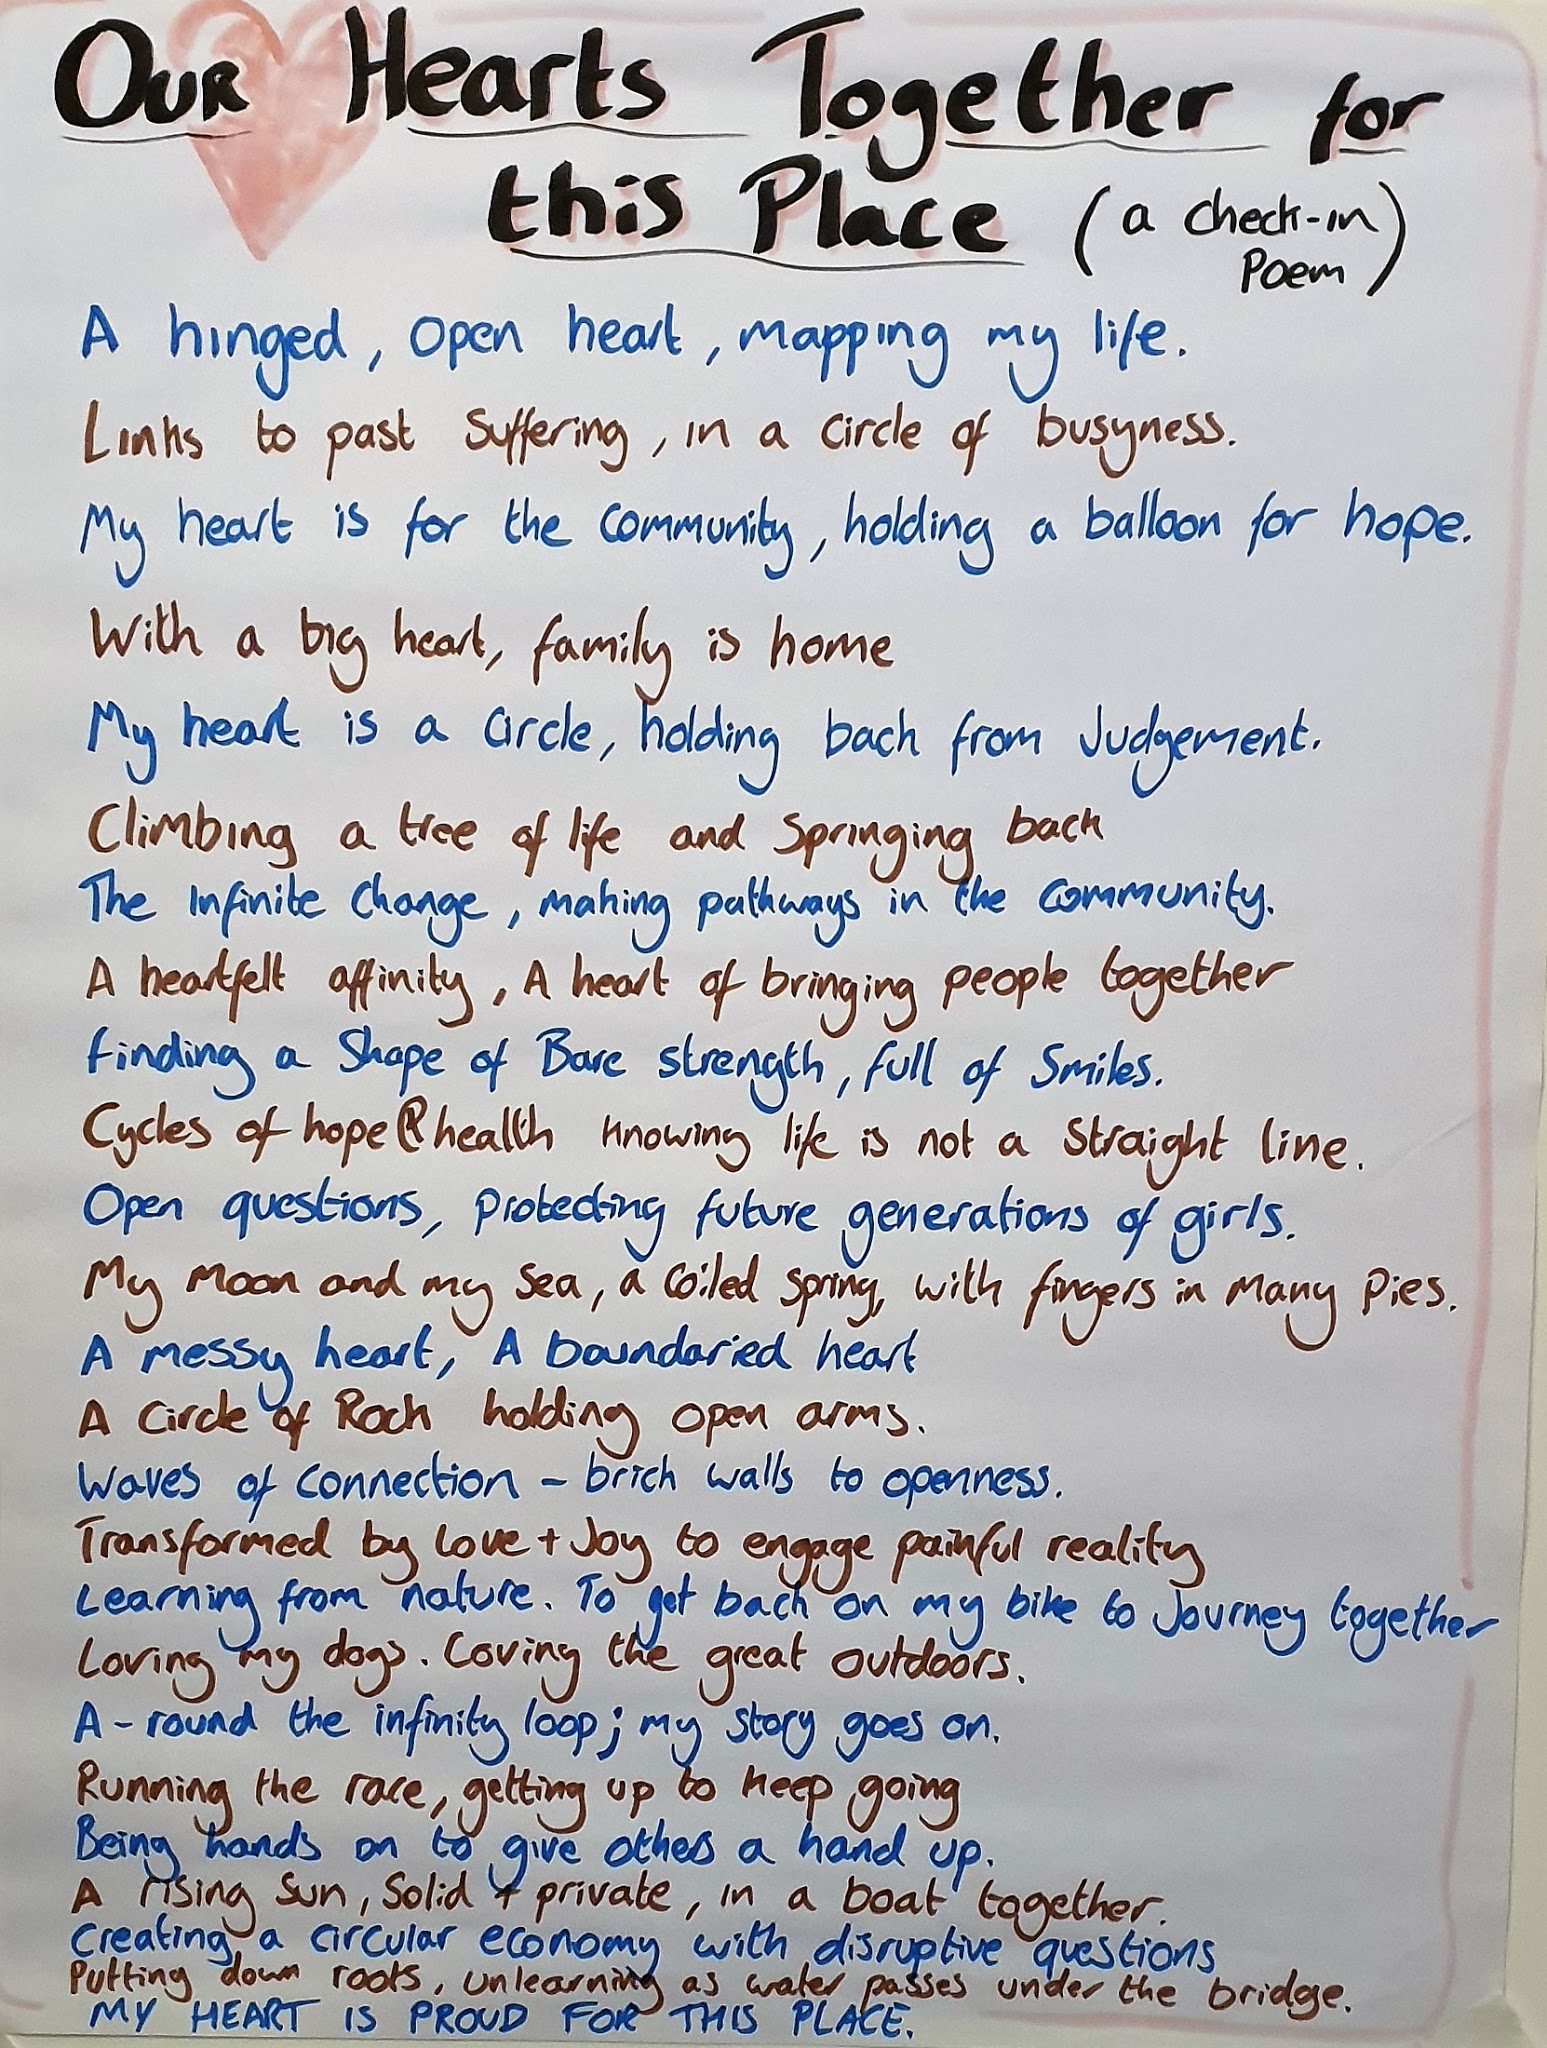 Our Hearts Together for
this Place (a check-in
Poem)
A hinged, open heart, mapping my life.
Links to past suffering, in a circle of busyness.
My heart is for the community, holding a balloon for hope.
With a big heart, family is home
My heart is a circle, holding back from Judgement.
Climbing a tree of life and springing back
The Infinite Change, making pathways in the community.
A heartfelt affinity, A heart of bringing people together
Finding a Shape of Bare strength, full of Smiles.
Cycles of hope @ health knowing life is not a straight line.
Open questions, protecting future generations of girls.
My Moon and my Sea, a coiled spring, with fingers in many pies.
A messy heart, A boundaried heart
A Circle of Rock holding open arms.
Waves of connection - brick walls to openness.
Transformed by Love + Joy to engage painful reality
Learning from nature. To get back on my bike to Journey together
Loving my dogs. Loving the great outdoors.
A-round the infinity loop; my story goes on.
Running the race, getting up to keep going
Being hands on to give others a hand up.
A rising Sun, Solid + private, in a boat together.
Creating a circular economy with disruptive questions
Putting down roots, unlearning as water passes under the bridge.
MY HEART IS PROUD FOR THIS PLACE.